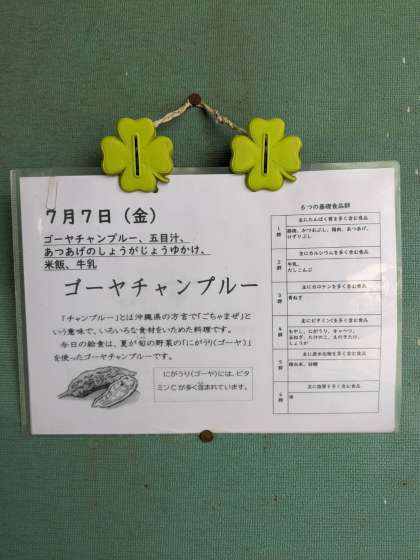 7月7日（金）
ゴーヤチャンプルー、五目汁、
あつあげのしょうがじょうゆかけ、
米飯、牛乳
ゴーヤチャンプルー
「チャンプルー」とは沖縄県の方言で「ごちゃまぜ」と
いう意味で、いろいろな食材をいためた料理です。
今日の給食は、夏が旬の野菜の「にがうり（ゴーヤ）」
を使ったゴーヤチャンプルーです。
にがうり（ゴーヤ）には、ビタ
ミンCが多く含まれています。
６つの基礎食品群
1群
主にたんぱく質を多く含む食品
豚肉、かつおぶし、鶏肉、あつあげ、
けずりぶし
2群
主にカルシウムを多く含む食品
牛乳、
だしこんぶ
3群
主にカロテンを多く含む食品
青ねぎ
4群
主にビタミンCを多く含む食品
もやし、にがうり、キャベツ、
玉ねぎ、たけのこ、えのきたけ、
しょうが
5群
主に炭水化物を多く含む食品
精白米、砂糖
6群
主に脂質を多く含む食品
油